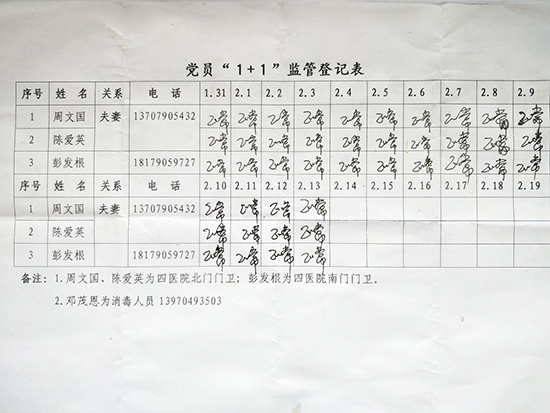 党员“1+1”监管登记表
序号 姓 名 关系 电 话 1.31 2.1 2.2 2.3 2.4 2.5 2.6 2.7 2.8 2.9
1 周文国 夫妻 13707905432 正常 正常 正常 正常 正常 正常 正常 正常 正常 正常
2 陈爱英 正常 正常 正常 正常 正常 正常 正常 正常 正常 正常
3 彭发根 18179059727 正常 正常 正常 正常 正常 正常 正常 正常 正常 正常
序号 姓 名 关系 电 话 2.10 2.11 2.12 2.13 2.14 2.15 2.16 2.17 2.18 2.19
1 周文国 夫妻 13707905432 正常 正常 正常 正常
2 陈爱英 正常 正常 正常 正常
3 彭发根 18179059727 正常 正常 正常 正常
备注：1.周文国、陈爱英为四医院北门门卫；彭发根为四医院南门门卫。
2.邓茂恩为消毒人员 13970493503